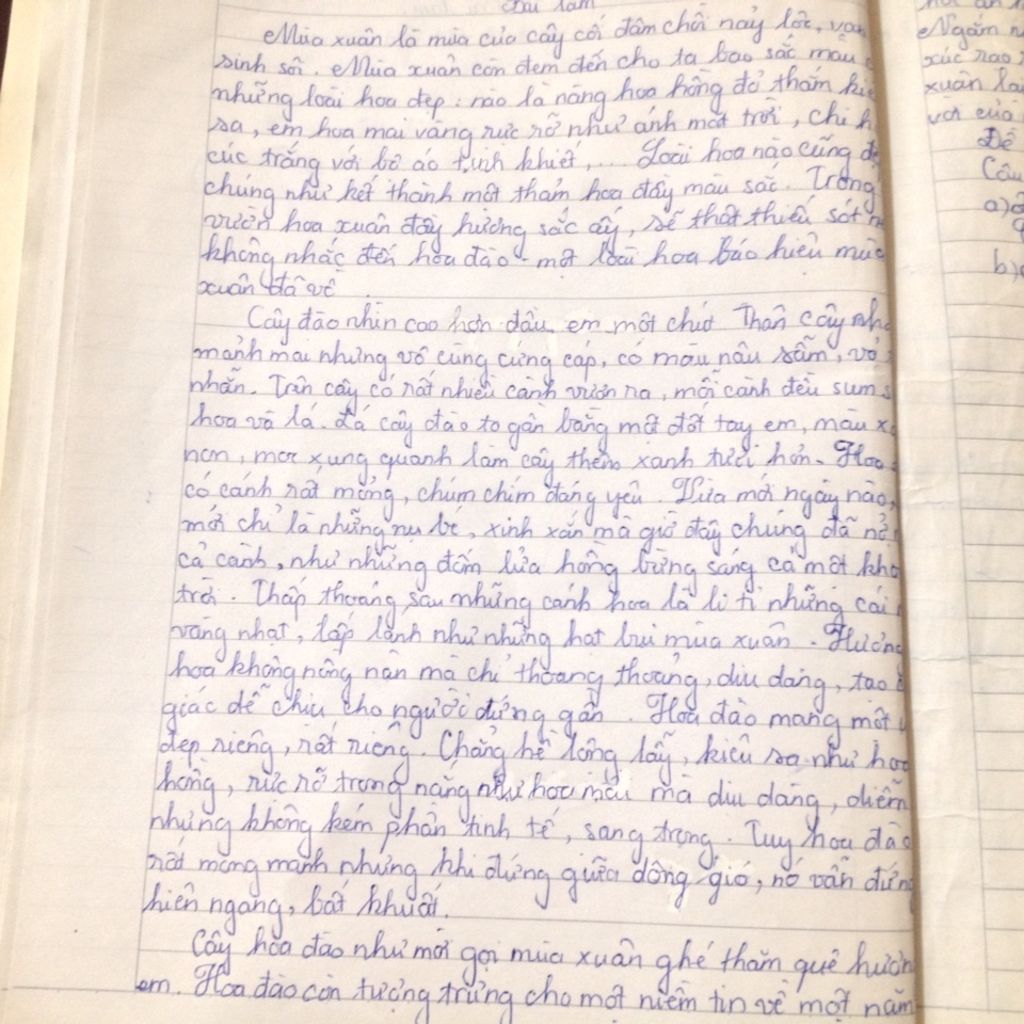 Bài làm
Mùa xuân là mùa của cây cối đâm chồi nảy lộc, vạn
sinh sôi. Mùa xuân còn đem đến cho ta bao sắc màu
những loài hoa đẹp: nào là nàng hoa hồng đỏ thắm kiê
sa, em hoa mai vàng rực rỡ như ánh mặt trời, chị h
cúc trắng với bộ áo tinh khiết,... Loài hoa nào cũng đẹ
chúng như kết thành một thảm hoa đầy màu sắc. Trong
vườn hoa xuân đầy hương sắc ấy, sẽ thật thiếu sót n
không nhắc đến hoa đào - một loài hoa báo hiệu mùa
xuân đã về.
Cây đào nhìn cao hơn đầu em một chút. Thân cây nh
mảnh mai nhưng vô cùng cứng cáp, có màu nâu sẫm, vỏ
nhẵn. Trên cây có rất nhiều cành vươn ra, mỗi cành đều sum s
hoa và lá. Lá cây đào to gần bằng một đốt tay em, màu x
non, mọc xung quanh làm cây thêm xanh tươi hơn. Hoa
có cánh rất mỏng, chúm chím đáng yêu. Vừa mới ngày nào,
mới chỉ là những nụ bé, xinh xắn mà giờ đây chúng đã nở
cả cành, như những đốm lửa hồng bừng sáng cả một kho
trời. Thấp thoáng sau những cánh hoa là li ti những cái
vàng nhạt, lấp lánh như những hạt bụi mùa xuân. Hương
hoa không nồng nàn mà chỉ thoang thoảng, dịu dàng, tạo
giác dễ chịu cho người đứng gần. Hoa đào mang một v
đẹp riêng, rất riêng. Chẳng hề lộng lẫy, kiêu sa như hoa
hồng, rực rỡ trong nắng như hoa mai mà dịu dàng, diễm
nhưng không kém phần tinh tế, sang trọng. Tuy hoa đào
rất mỏng manh nhưng khi đứng giữa dông gió, nó vẫn đứng
hiên ngang, bất khuất.
Cây hoa đào như mời gọi mùa xuân ghé thăm quê hươn
em. Hoa đào còn tượng trưng cho một niềm tin về một năm
Ngắm n
xúc rạo r
xuân la
vời của
Đề
Câu
a)
b)